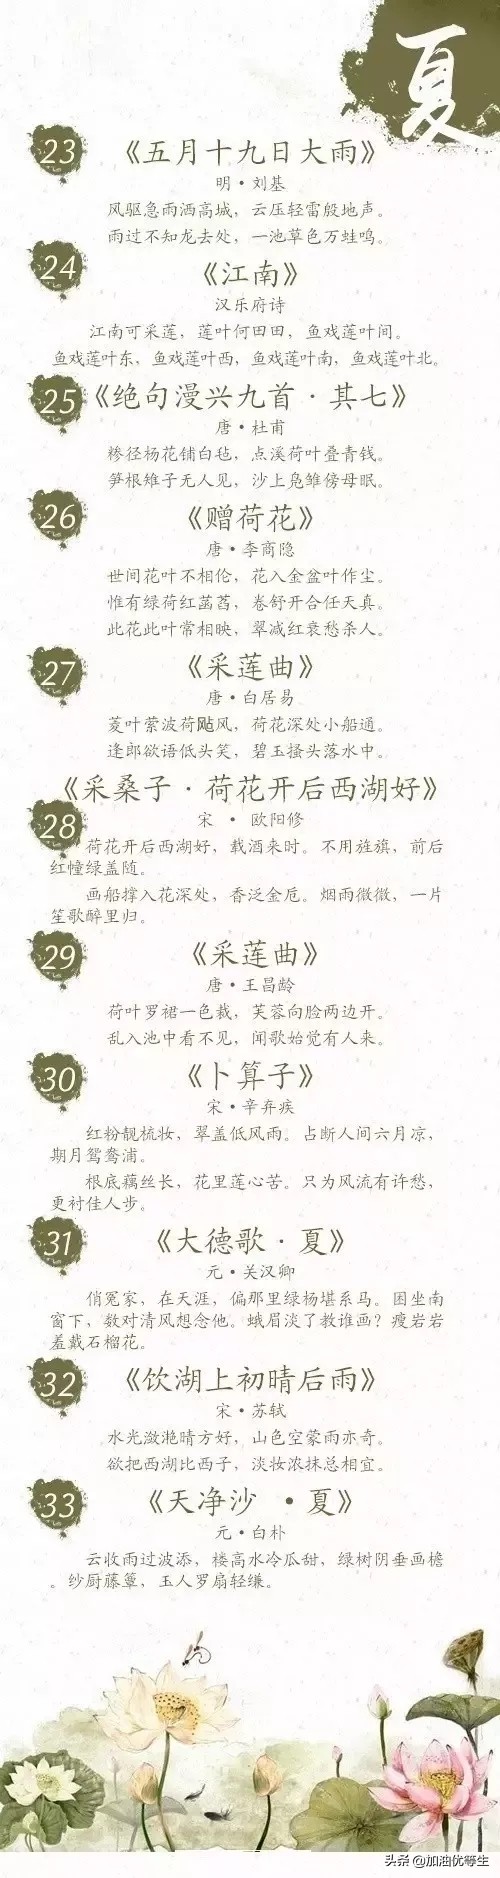 夏
23
《五月十九日大雨》
明·刘基
风驱急雨洒高城，云压轻雷殷地声。
雨过不知龙去处，一池草色万蛙鸣。
24
《江南》
汉乐府诗
江南可采莲，莲叶何田田，鱼戏莲叶间。
鱼戏莲叶东，鱼戏莲叶西，鱼戏莲叶南，鱼戏莲叶北。
25
《绝句漫兴九首·其七》
唐·杜甫
糁径杨花铺白毡，点溪荷叶叠青钱。
笋根雉子无人见，沙上凫雏傍母眠。
26
《赠荷花》
唐·李商隐
世间花叶不相伦，花入金盆叶作尘。
惟有绿荷红菡萏，卷舒开合任天真。
此花此叶常相映，翠减红衰愁杀人。
27
《采莲曲》
唐·白居易
菱叶萦波荷飐风，荷花深处小船通。
逢郎欲语低头笑，碧玉搔头落水中。
《采桑子·荷花开后西湖好》
28
宋 · 欧阳修
荷花开后西湖好，载酒来时。不用旌旗，前后
红幢绿盖随。
画船撑入花深处，香泛金卮。烟雨微微，一片
笙歌醉里归。
29
《采莲曲》
唐·王昌龄
荷叶罗裙一色裁，芙蓉向脸两边开。
乱入池中看不见，闻歌始觉有人来。
30
《卜算子》
宋·辛弃疾
红粉靓梳妆，翠盖低风雨。占断人间六月凉，
期月鸳鸯浦。
根底藕丝长，花里莲心苦。只为风流有许愁，
更衬佳人步。
31
《大德歌·夏》
元·关汉卿
俏冤家，在天涯，偏那里绿杨堪系马。困坐南
窗下，数对清风想念他。蛾眉淡了教谁画？瘦岩岩
羞戴石榴花。
32
《饮湖上初晴后雨》
宋·苏轼
水光潋滟晴方好，山色空蒙雨亦奇。
欲把西湖比西子，淡妆浓抹总相宜。
33
《天净沙 ·夏》
元·白朴
云收雨过波添，楼高水冷瓜甜，绿树阴垂画檐
。纱厨藤簟，玉人罗扇轻缣。
头条 @加油优等生